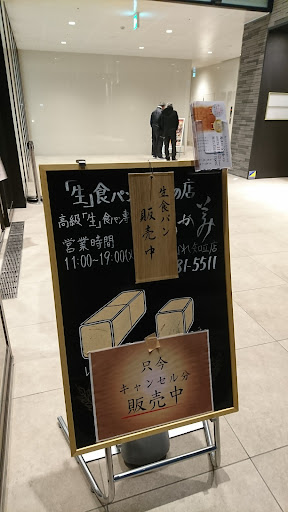 「生」食パン
の店
高級「生」食パン専
営業時間
11:00~19:00
81-5511
生食パン
販売中
只今
キャンセル分
販売中